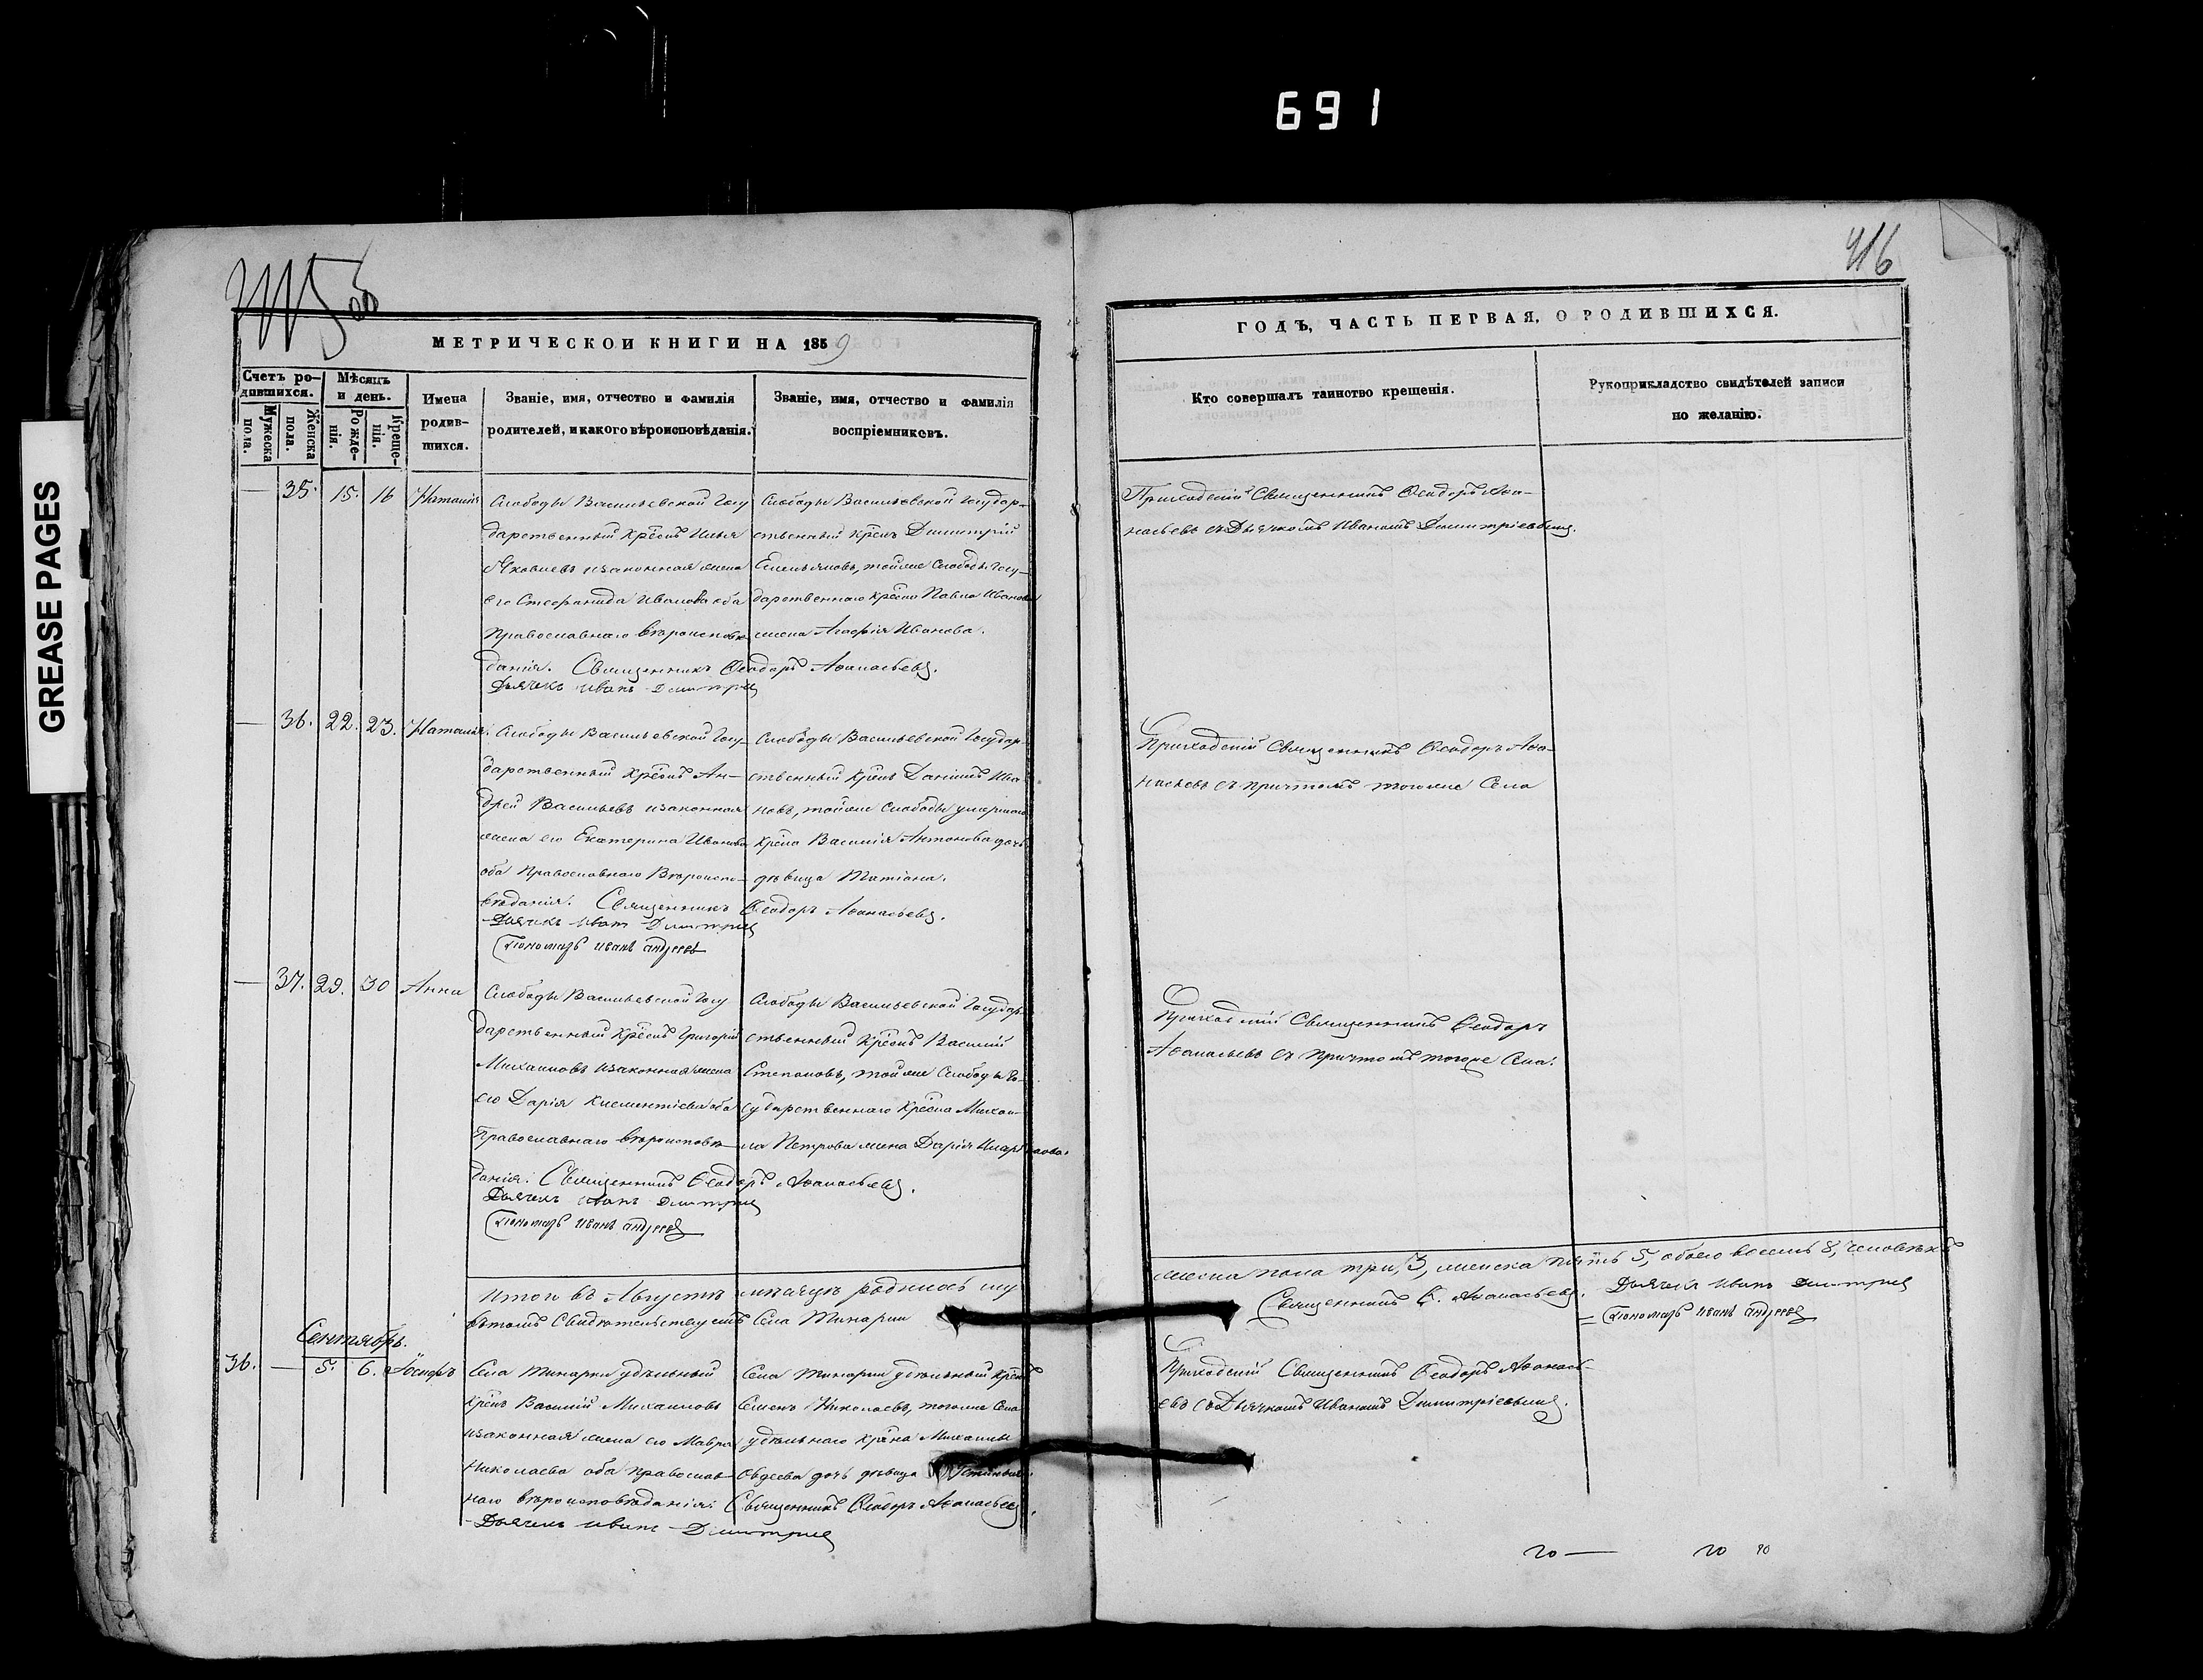 691
GREASE PAGES
416
МЕТРИЧЕСКОЙ КНИГИ НА 1859
Счетъ ро-
дившихся.
Мужеска
пола.
Женска
пола.
Мѣсяцъ
и день.
Рожде-
нія.
Креще-
нія.
Имена
родив-
шихся.
Званіе, имя, отчество и фамилія
родителей, и какого вѣроисповѣданія.
Званіе, имя, отчество и фамилія
воспріемниковъ.
ГОДЪ, ЧАСТЬ ПЕРВАЯ, О РОДИВШИХСЯ.
Кто совершалъ таинство крещенія.
Рукоприкладство свидѣтелей записи
по желанію.
— 35. 15. 16 Наталія
Слободы Васильевской Госу
дарственный Крѣснъ Илья
Яковлевъ изаконная жена
его Стефанида Иванова оба
Православнаго Вѣроисповѣ
данія. Священникъ Ѳеодоръ Аѳанасьевъ.
Дьячекъ Иванъ Дмитрiев
Слободы Васильевской Государ-
ственный Крѣснъ Димитрій
Емельяновъ, тойже Слободы Госу-
дарственнаго Крѣсна Павла Иванова
жена Агафія Иванова.
Приходскій Священникъ Ѳеодоръ Аѳа-
насьевъ съ Дьячкомъ Иваномъ Димитріевымъ.
— 36. 22. 23. Наталія.
Слободы Васильевской Госу-
дарственный Крѣснъ Ан-
дрей Васильевъ изаконная
жена его Екатерина Иванова
оба Православнаго Вѣроиспо-
вѣданія. Священникъ Ѳеодоръ Аѳанасьевъ.
Дьячекъ Иванъ Дмитрiев
Пономарь Иванъ Андреевъ
Слободы Васильевской Государ-
ственный Крѣснъ Даніилъ Ива-
новъ, тойже Слободы умершаго
Крѣсна Василія Антонова дочь
дѣвица Татіана.
Приходскій Священникъ Ѳеодоръ Аѳа-
насьевъ съ причтомъ тогоже Села
— 37. 29. 30 Анна
Слободы Васильевской Госу
дарственный Крѣснъ Григорій
Михаиловъ изаконная жена
его Дарія Климентіева оба
Православнаго Вѣроисповѣ-
данія. Священникъ Ѳеодоръ Аѳанасьевъ.
Дьячекъ Иванъ Дмитрiев
Пономарь Иванъ Андреевъ
Слободы Васильевской Государ-
ственный Крѣснъ Василій
Степановъ, тойже Слободы Го-
сударственнаго Крѣсна Михаи-
ла Петрова жена Дарія
Приходскій Священникъ Ѳеодоръ
Аѳанасьевъ съ Причтомъ тогоже Села.
Итого въ Августѣ мѣсяцѣ родилось му
жеска пола три, 3, женска пять 5, обоего восемь 8, человѣкъ
Села
Священникъ Ѳ. Аѳанасьевъ. Дьячекъ Иванъ Дмитрiев
Пономарь Иванъ Андреевъ
Сентябрь.
36. — 5. 6. Іосифъ
Села удѣльный
Крѣснъ Василій Михаиловъ
изаконная жена его Мавра
Николаева оба православ-
наго вѣроисповѣданія. Священникъ Ѳеодоръ Аѳанасьевъ.
Дьячекъ Иванъ Дмитрiев
Села удѣльный Крѣснъ
Семенъ Николаевъ, тогоже Села
удѣльнаго Крѣсна Михаила
Овдеева дочь дѣвица
Приходскій Священникъ Ѳеодоръ Аѳанась-
евъ съ Дьячкомъ Иваномъ Димитріевымъ.